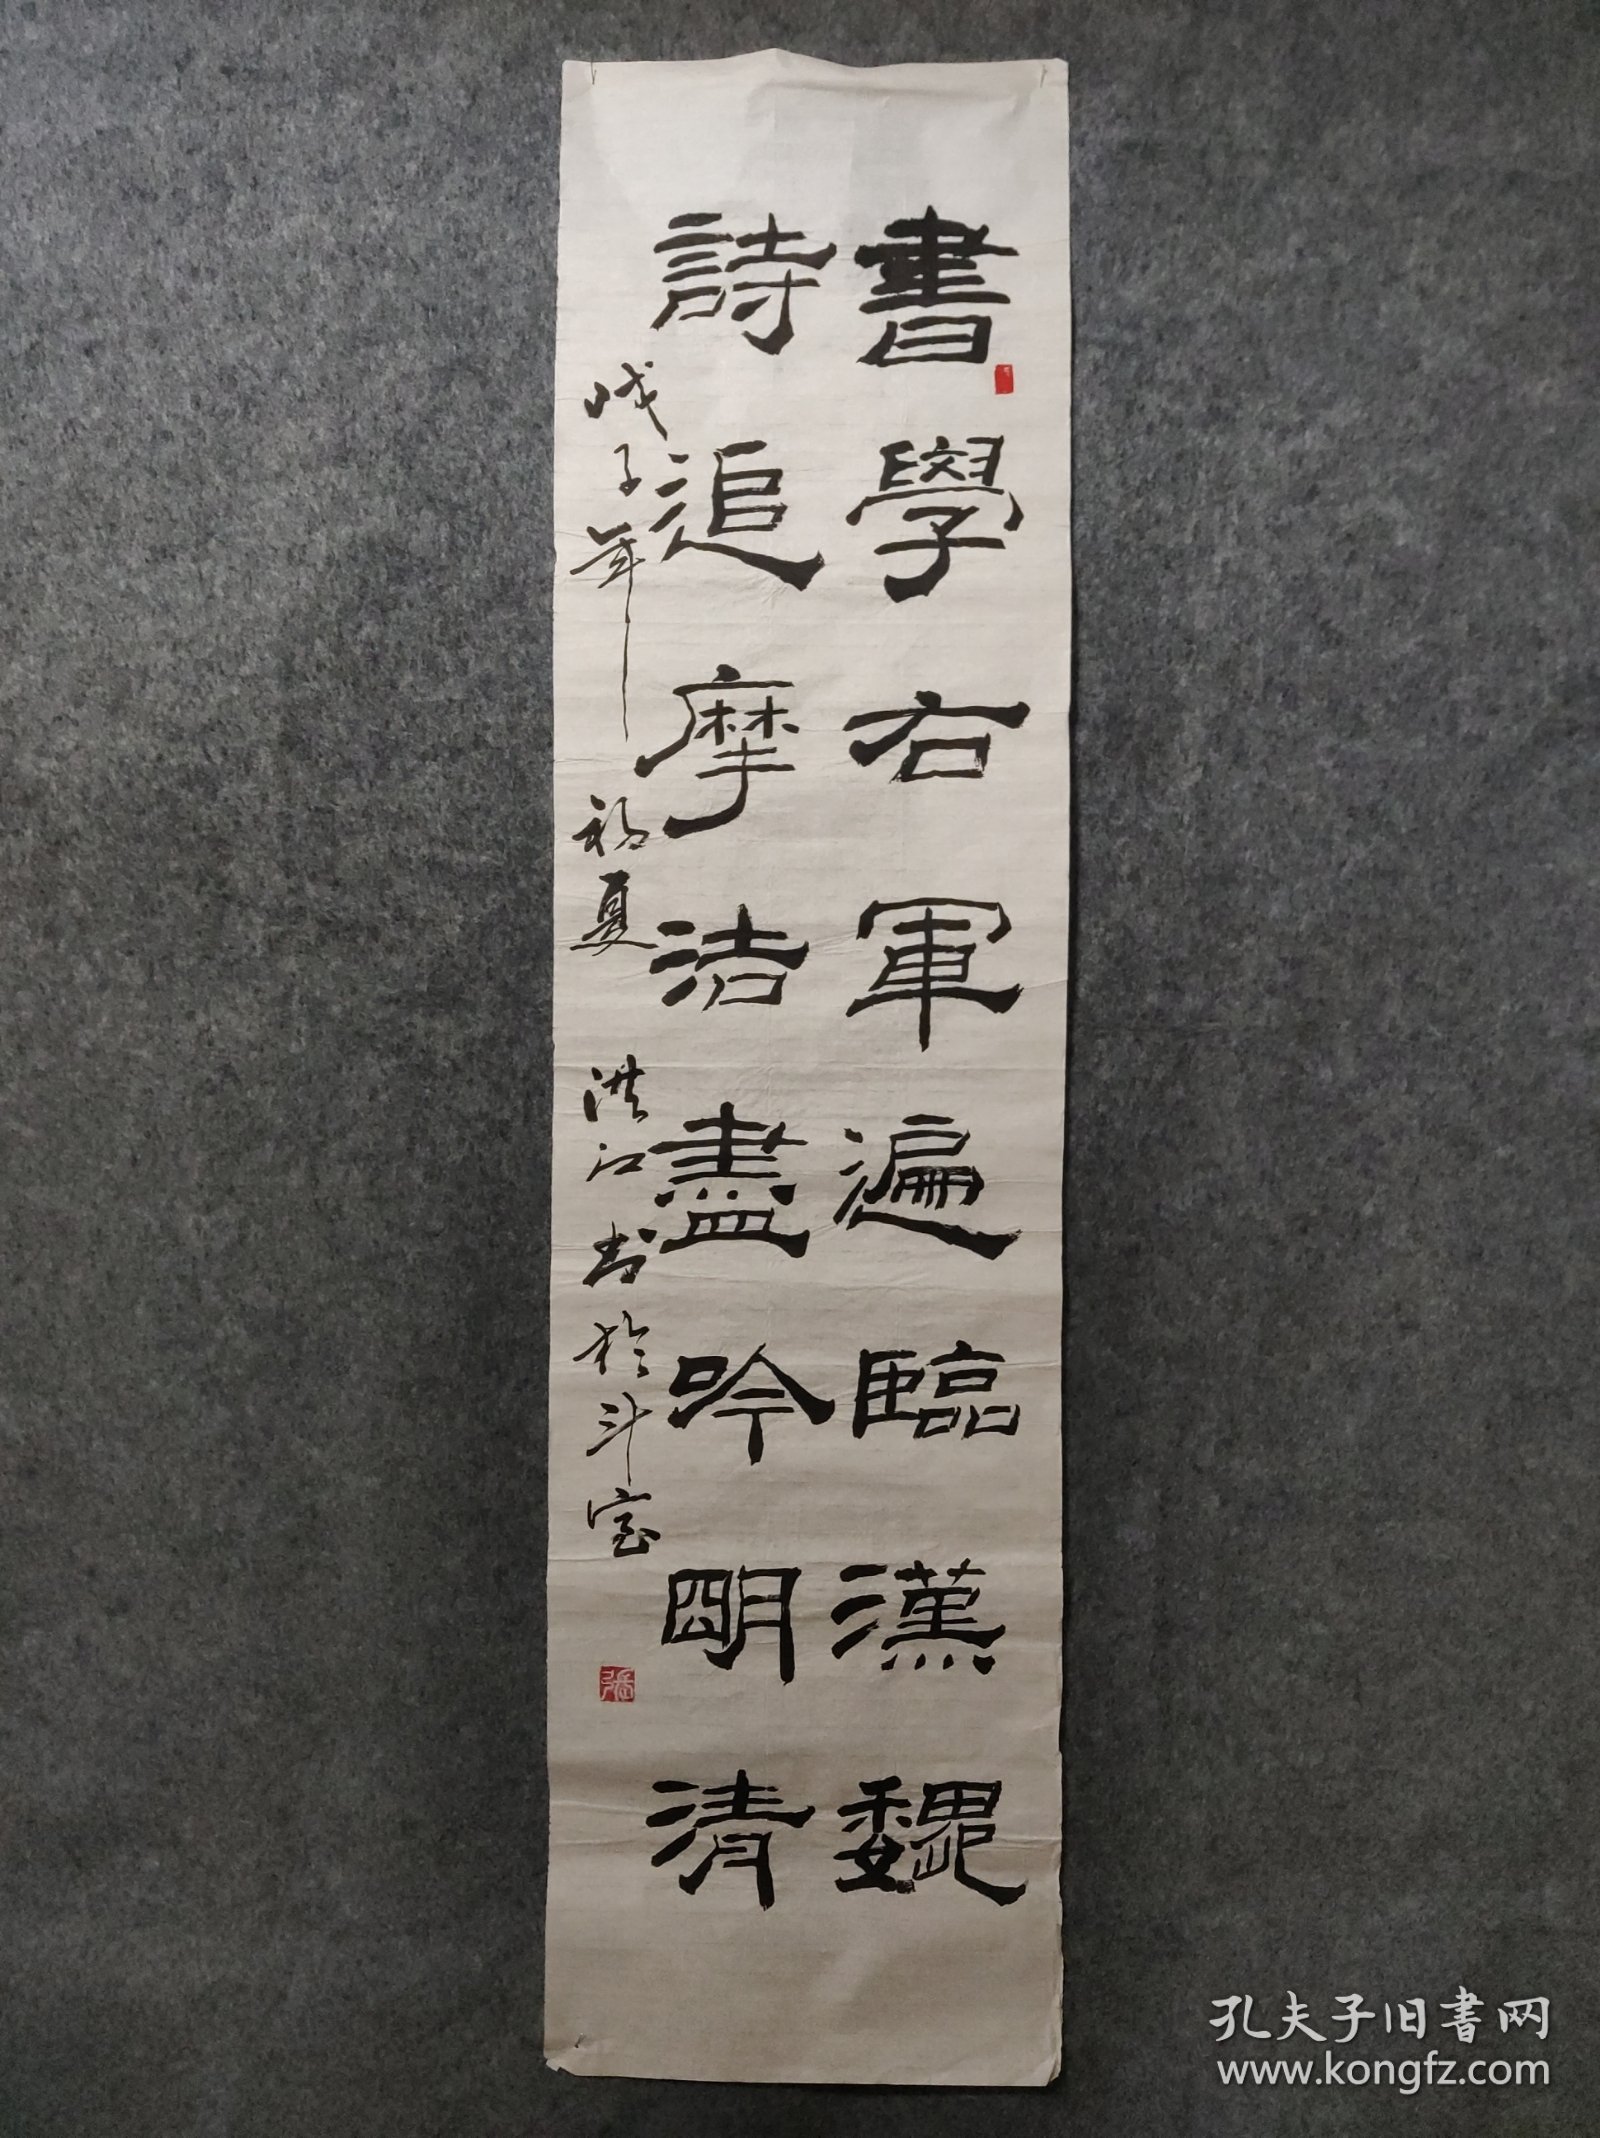 書學右軍遍臨漢魏
詩追摩詰盡吟明清
戊子年初夏洪江书於斗室
張
孔夫子旧書网
www.kongfz.com